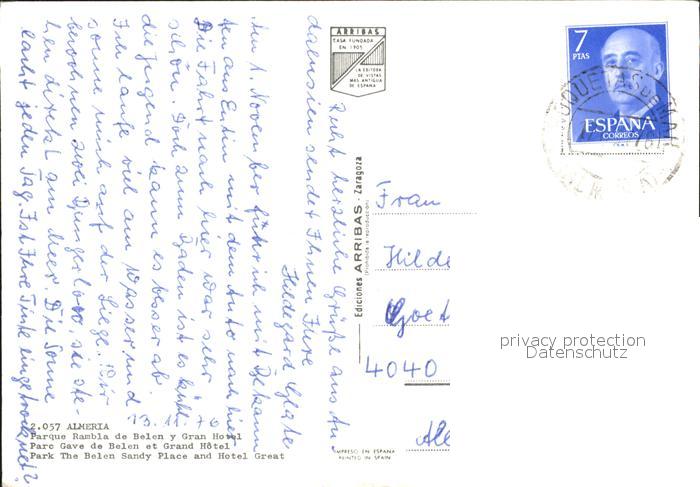 ARRIBAS
CASA FUNDADA
EN 1905
LA EDITORA
DE VISTAS
MAS ANTIGUA
DE ESPAÑA
7
PTAS
ESPAÑA
CORREOS
Recht herzliche Grüße aus An-
dalusien sendet Ihnen Ihre
Hildegard
Am 1. November fuhr ich mit Bekann
ten aus Eutin mit dem Auto nach hier
Die Fahrt nach hier war sehr
schön. Doch zum Baden ist es kühl.
die Jugend kann es besser ab.
Ich laufe viel am Wasser und
sonne mich auf der Liege. Wir
bewohnen zwei Bungalows sie ste-
hen direkt am Meer. Die Sonne
lacht jeden Tag. Ist Ihre Tinte eingetrocknet?
13.11.76
Ediciones ARRIBAS - Zaragoza
(Prohibida la reproducción)
Frau
Hilde
Goet
4040
2.057 ALMERIA
Parque Rambla de Belen y Gran Hotel
Parc Gave de Belen et Grand Hôtel
Park The Belen Sandy Place and Hotel Great
IMPRESO EN ESPAÑA
PRINTED IN SPAIN
privacy protection
Datenschutz